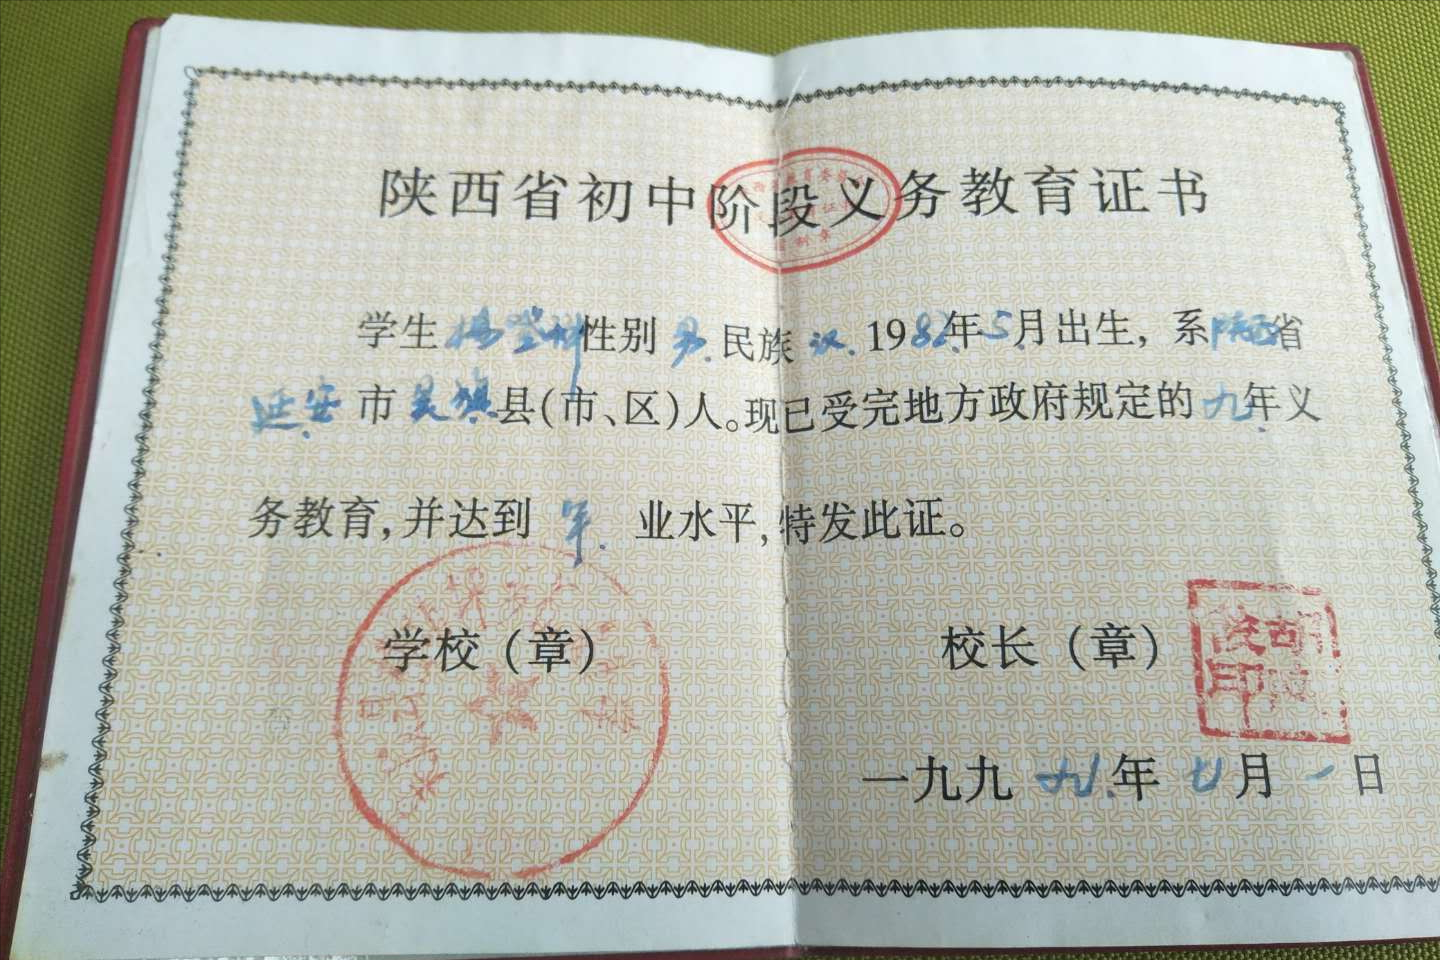 陕西省初中阶段义务教育证书
学生 杨登科 性别 男 民族 汉 1982年5月出生，系陕西省
延安市吴旗县(市、区)人。现已受完地方政府规定的九年义
务教育，并达到 毕 业水平，特发此证。
学校（章）
校长（章）
一九九九年七月一日